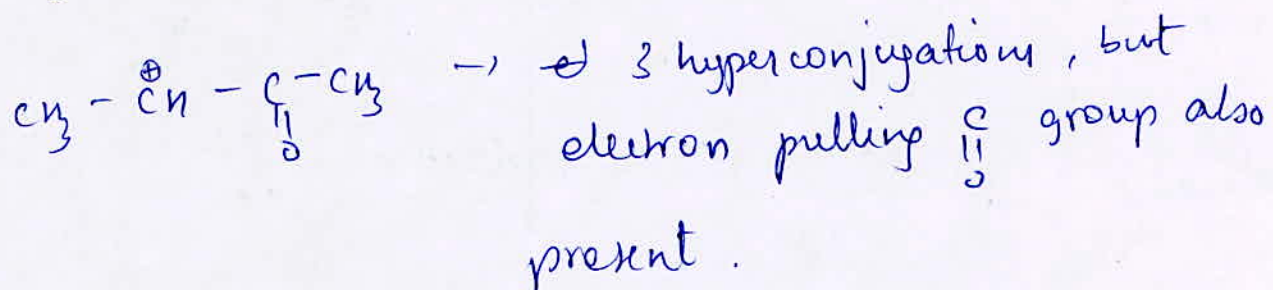 CH₃ - C͏H⊕ - C - CH₃ → 3 hyperconjugations, but
||
O
electron pulling C group also
||
O
present.